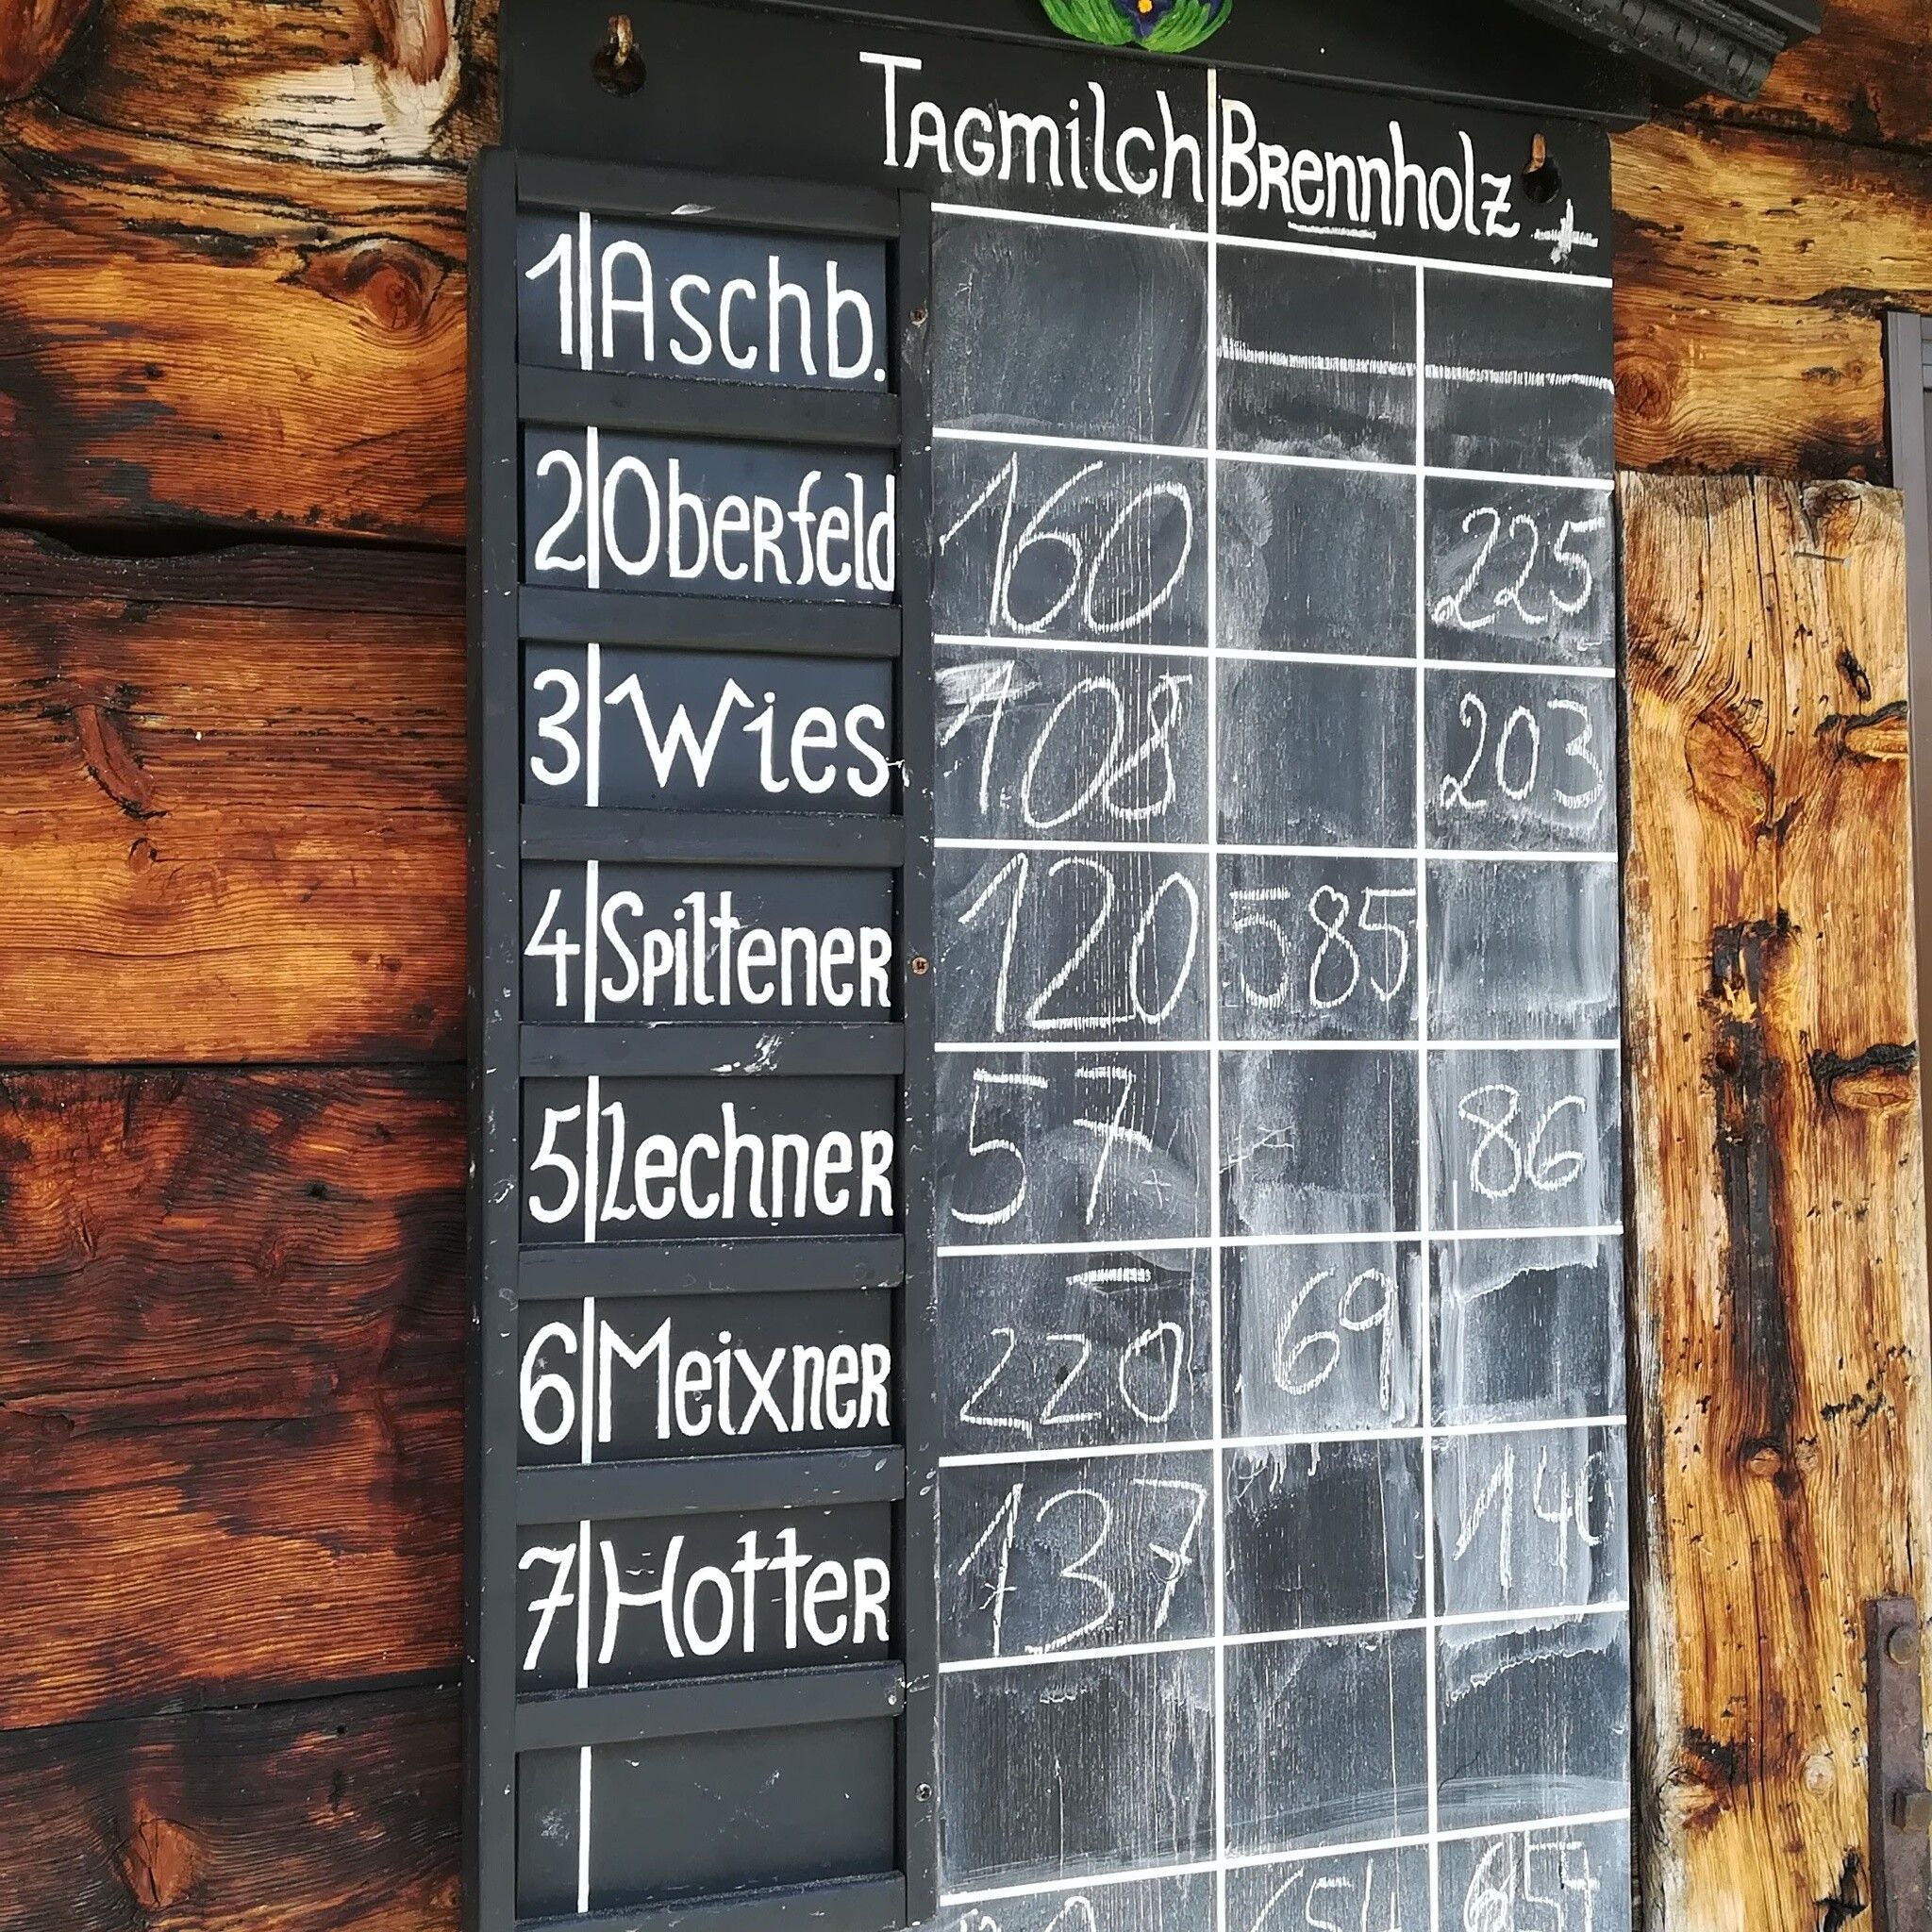 Tagmilch Brennholz - +
1 Aschb. —
2 Oberfeld 160 225
3 Wies 108 203
4 Spiltener 120 585
5 Lechner 57 86
6 Meixner 220 69
7 Hotter 137 140
654 654